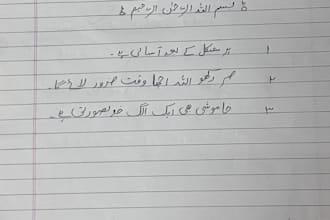 بسم اللہ الرحمٰن الرحیم
۱ ہر مشکل کے بعد آسانی ہے۔
۲ صبر رکھو اللہ اچھا وقت ضرور لائے گا۔
۳ خاموشی بھی ایک الگ خوبصورتی ہے۔